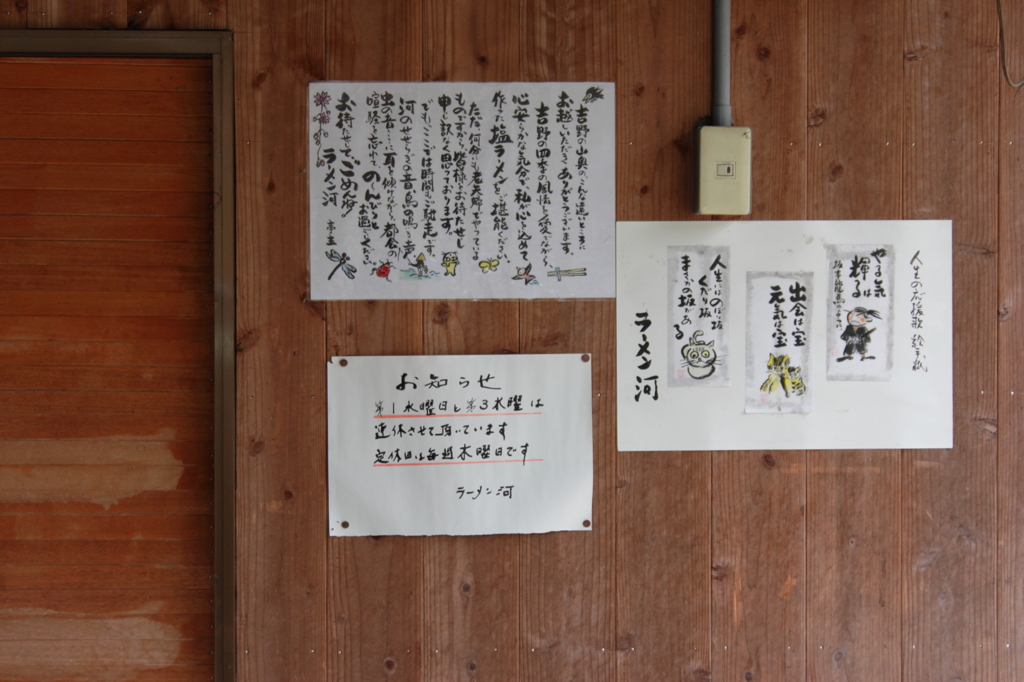 吉野の山奥のこんな遠いところに
お越しいただきありがとうございます。
吉野の四季の風情を愛でながら、
心安らかなお気分で、私が心を込めて
作った塩ラーメンをご堪能ください。
ただ、何分にも老夫婦でやっている
ものですから、皆様をお待たせし
申し訳なく思っております。
でも、ここでは時間もご馳走です。
河のせせらぎの音、鳥の鳴く声、
虫の音・・・に耳を傾けながら、都会の
喧騒を忘れて、の〜んびりと
お過ごしください。
お待たせしてごめんなさい
ラーメン河 亭主
人生の応援歌 絵手紙
やる気は
輝る
出会は宝
元気は宝
人生にはのぼり坂
くだり坂
まさかの坂がある
ラーメン河
お知らせ
第1水曜日と第3水曜は
連休させて頂いています
定休日は毎週木曜日です
ラーメン河